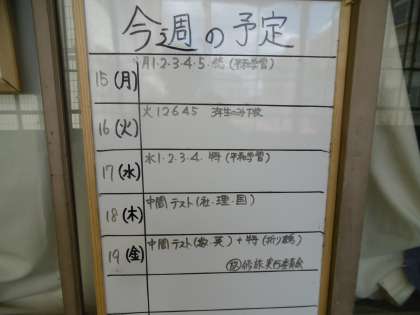 今週の予定
15(月) 月1.2.3.4.5.総(平和学習)
16(火) 火12645 3年生のみ下校
17(水) 水1.2.3.4.特(平和学習)
18(木) 中間テスト(社.理.国)
19(金) 中間テスト(数.英)+特(折り鶴)
修旅実行委員会